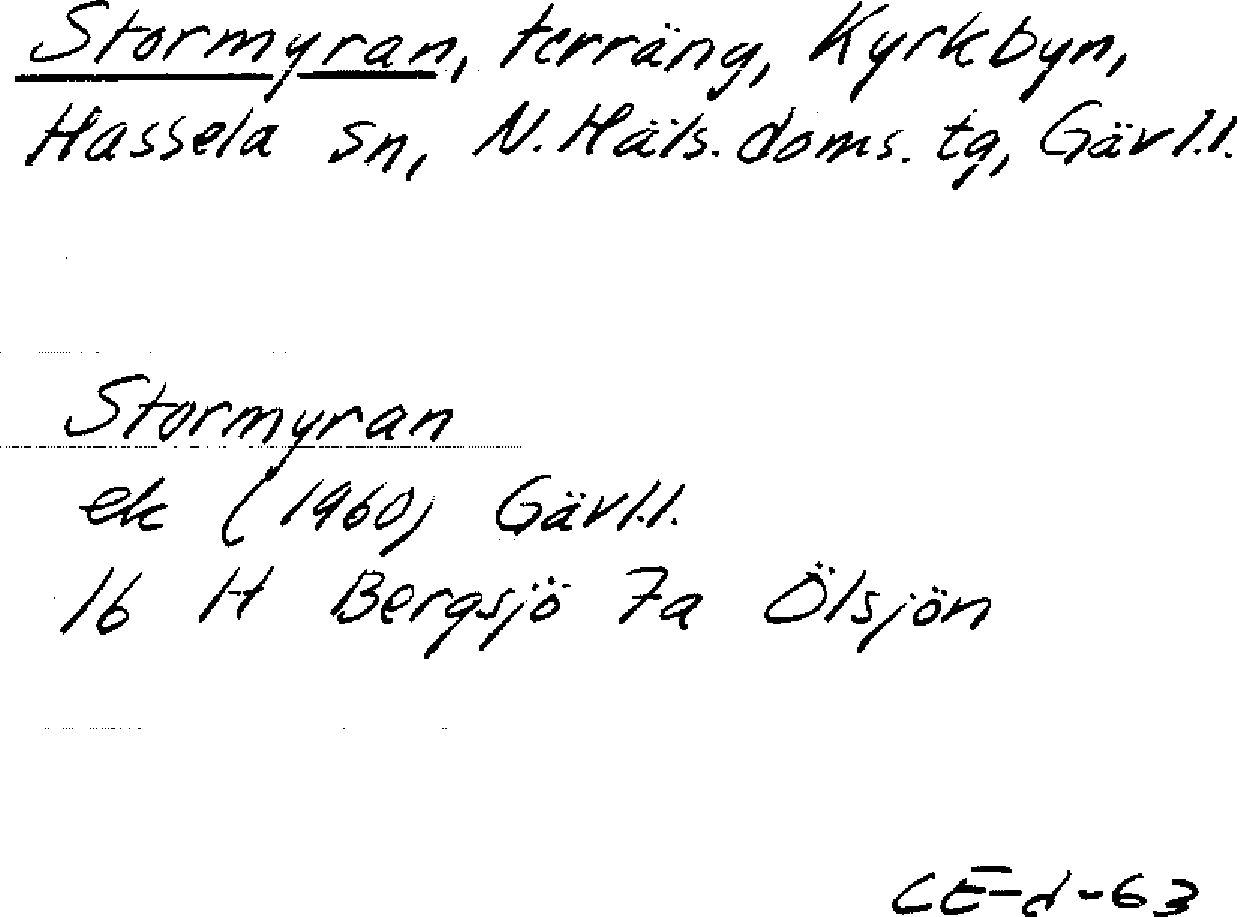 Stormyran, terräng, Kyrkbyn,
Hassela sn, N. Häls. doms. tg, Gävl.l.
Stormyran
ek (1960) Gävl.l.
16 H Bergsjö 7a Ölsjön
CE-d-63